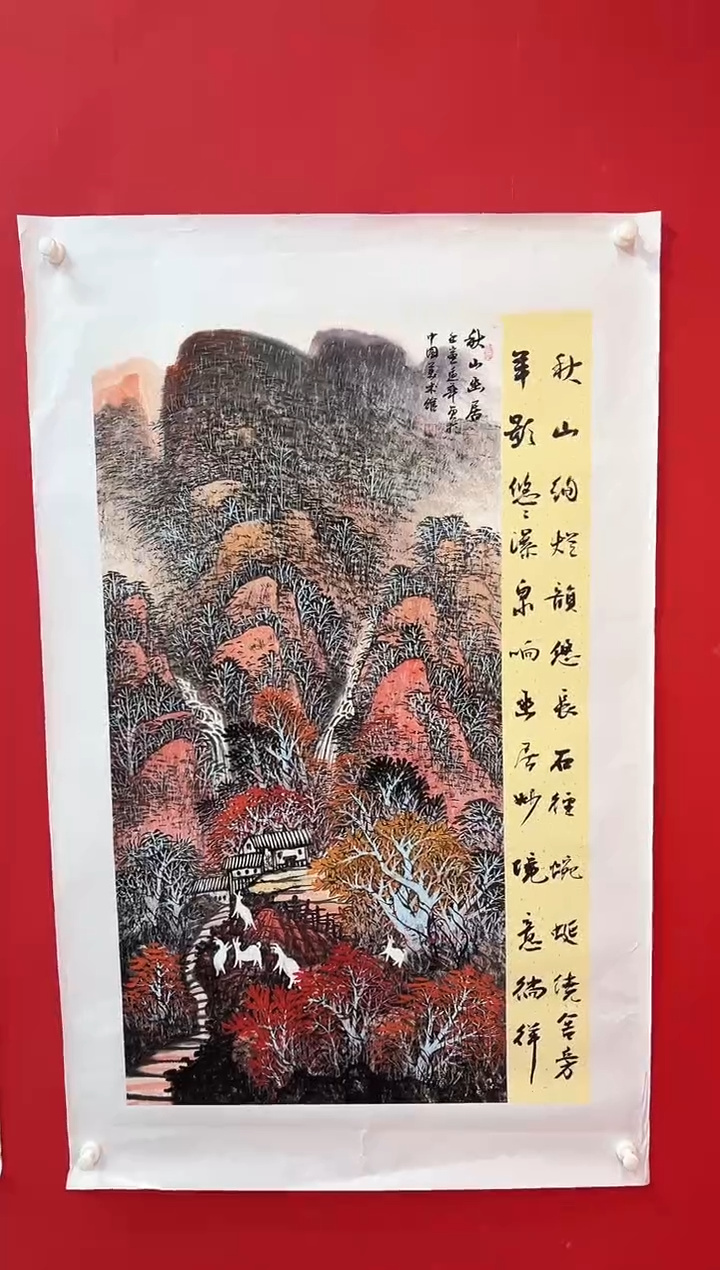 秋山絢烂韻悠长石径蜿蜒绕舍旁
羊影悠々瀑泉响幽居妙境意徜徉
秋山幽居
壬寅
中国美术馆